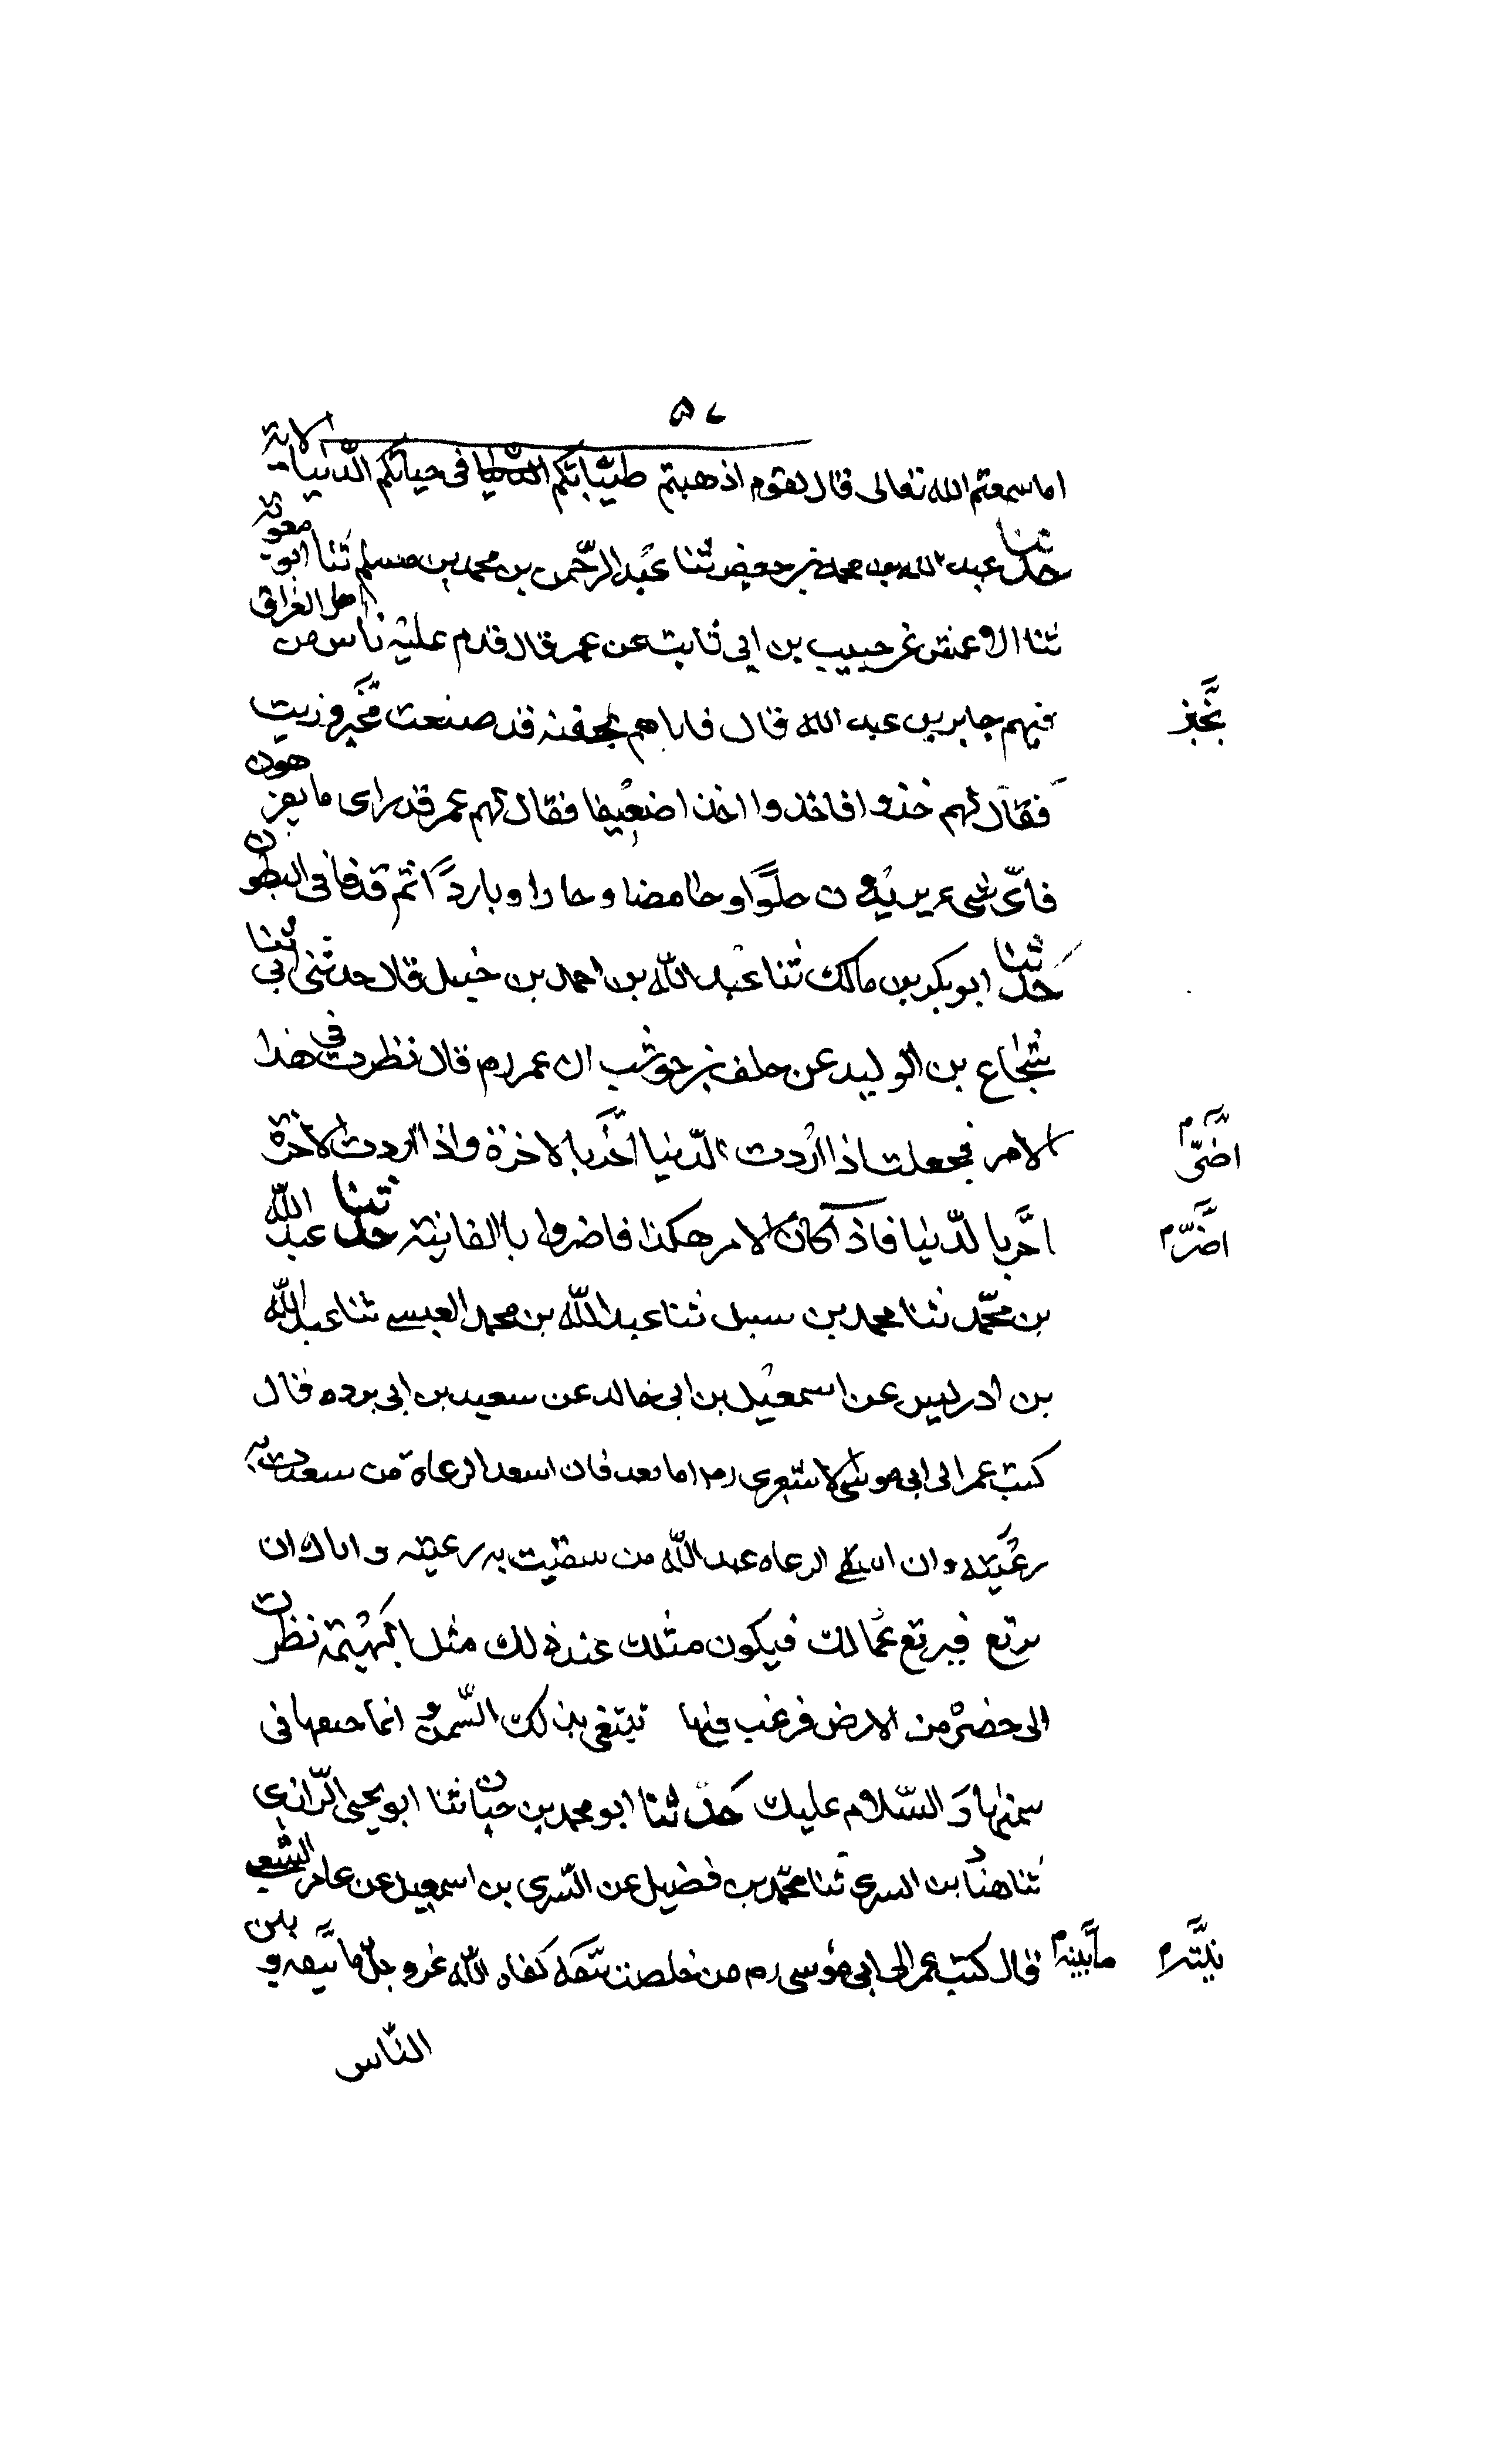 ٥٧
اما سمعتم الله تعالى قال لقوم اذهبتم طيباتكم فى حياتكم الدنيا الاية
حدثنا عبد الله بن محمد بن جعفر ثنا عبد الرحمن بن محمد بن مسلم ثنا ابو معوية
ثنا الاعمش عن حبيب بن ابى ثابت عن عمر قال قدم عليه ناس من اهل العراق
فيهم جابر بن عبد الله قال فاتاهم بجفنة قد صنعت بخبز وزيت
بخبز
فقال لهم خذوا فاخذوا اخذا ضعيفا فقال لهم عمر قد راى ما يعزهون
فاىّ شى عريريدون حلوا وحامضا وحارا وباردا ثم قذفا فى البطون
حدثنا ابو بكر بن مالك ثنا عبد الله بن احمد بن حنبل قال حدثنى ابى ثنا
شجاع بن الوليد عن خلف بن حوشب ان عمر رم قال نظرت فى هذا
الامر فجعلت اذا اردت الدنيا اخر بالاخرة واذا اردت الاخرة
اضىّ م
اخر بالدنيا فاذا كان الامر هكذا فاضروا بالفانية حدثنا عبد الله
اضرّ م
بن محمد ثنا محمد بن سبل ثنا عبد الله بن محمد العبسى ثنا عبد الله
بن ادريس عن اسمعيل بن ابى خالد عن سعيد بن ابى برده قال
كتب عمر الى ابى موسى الاشعرى رم اما بعد فان اسعد الرعاة من سعدت به
رعيته وان الرعاه عبد الله من سقيت به رعيته واياك ان
يرتع فيرتع عمالك فيكون مثلك عند ذلك مثل البهيمة نظرت
الى خضرة من الارض فرغب فيها تبتغى بذلك السمن وانما حتفها فى
سمنها والسلام عليك حدثنا ابو محمد بن حيان ثنا ابو يحيى الرازى
ثنا هناد بن السرى ثنا محمد بن فضيل عن السرى بن اسمعيل عن عامر الشعبى
قال كتب عمر الى ابى موسى رم من خلصت نيته كفاه الله عز وجل ما بينه وبين
ما بينه م
نيته م
الناس